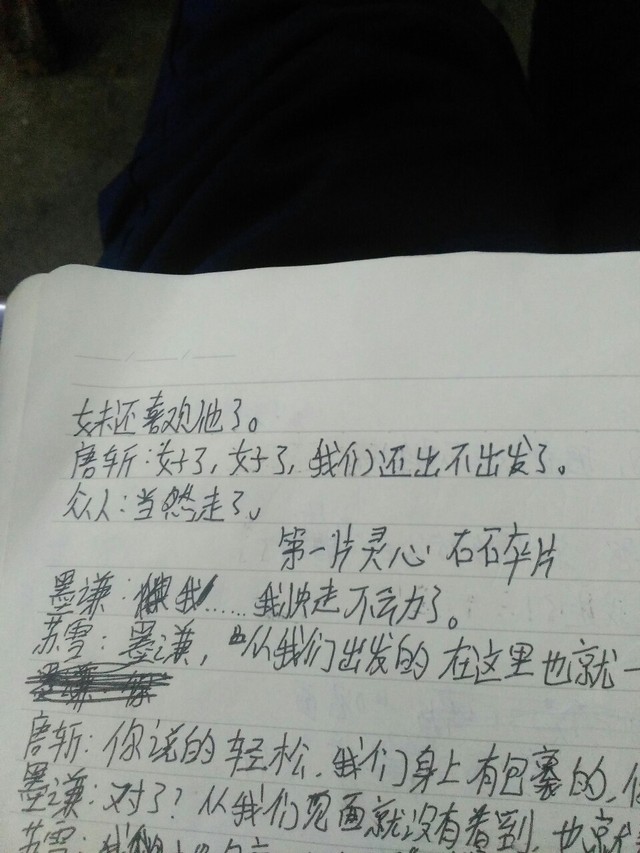 妹还喜欢他了。
唐斩:好了,好了,我们还出不出发了。
众人:当然走了。
第一片灵心石碎片
墨谦:我……我快走不动了。
苏雪:墨谦,从我们出发的在这里也就一
唐斩:你说的轻松,我们身上有包裹的,
墨谦:对了?从我们见面就没有看到,也就
苏雪:我